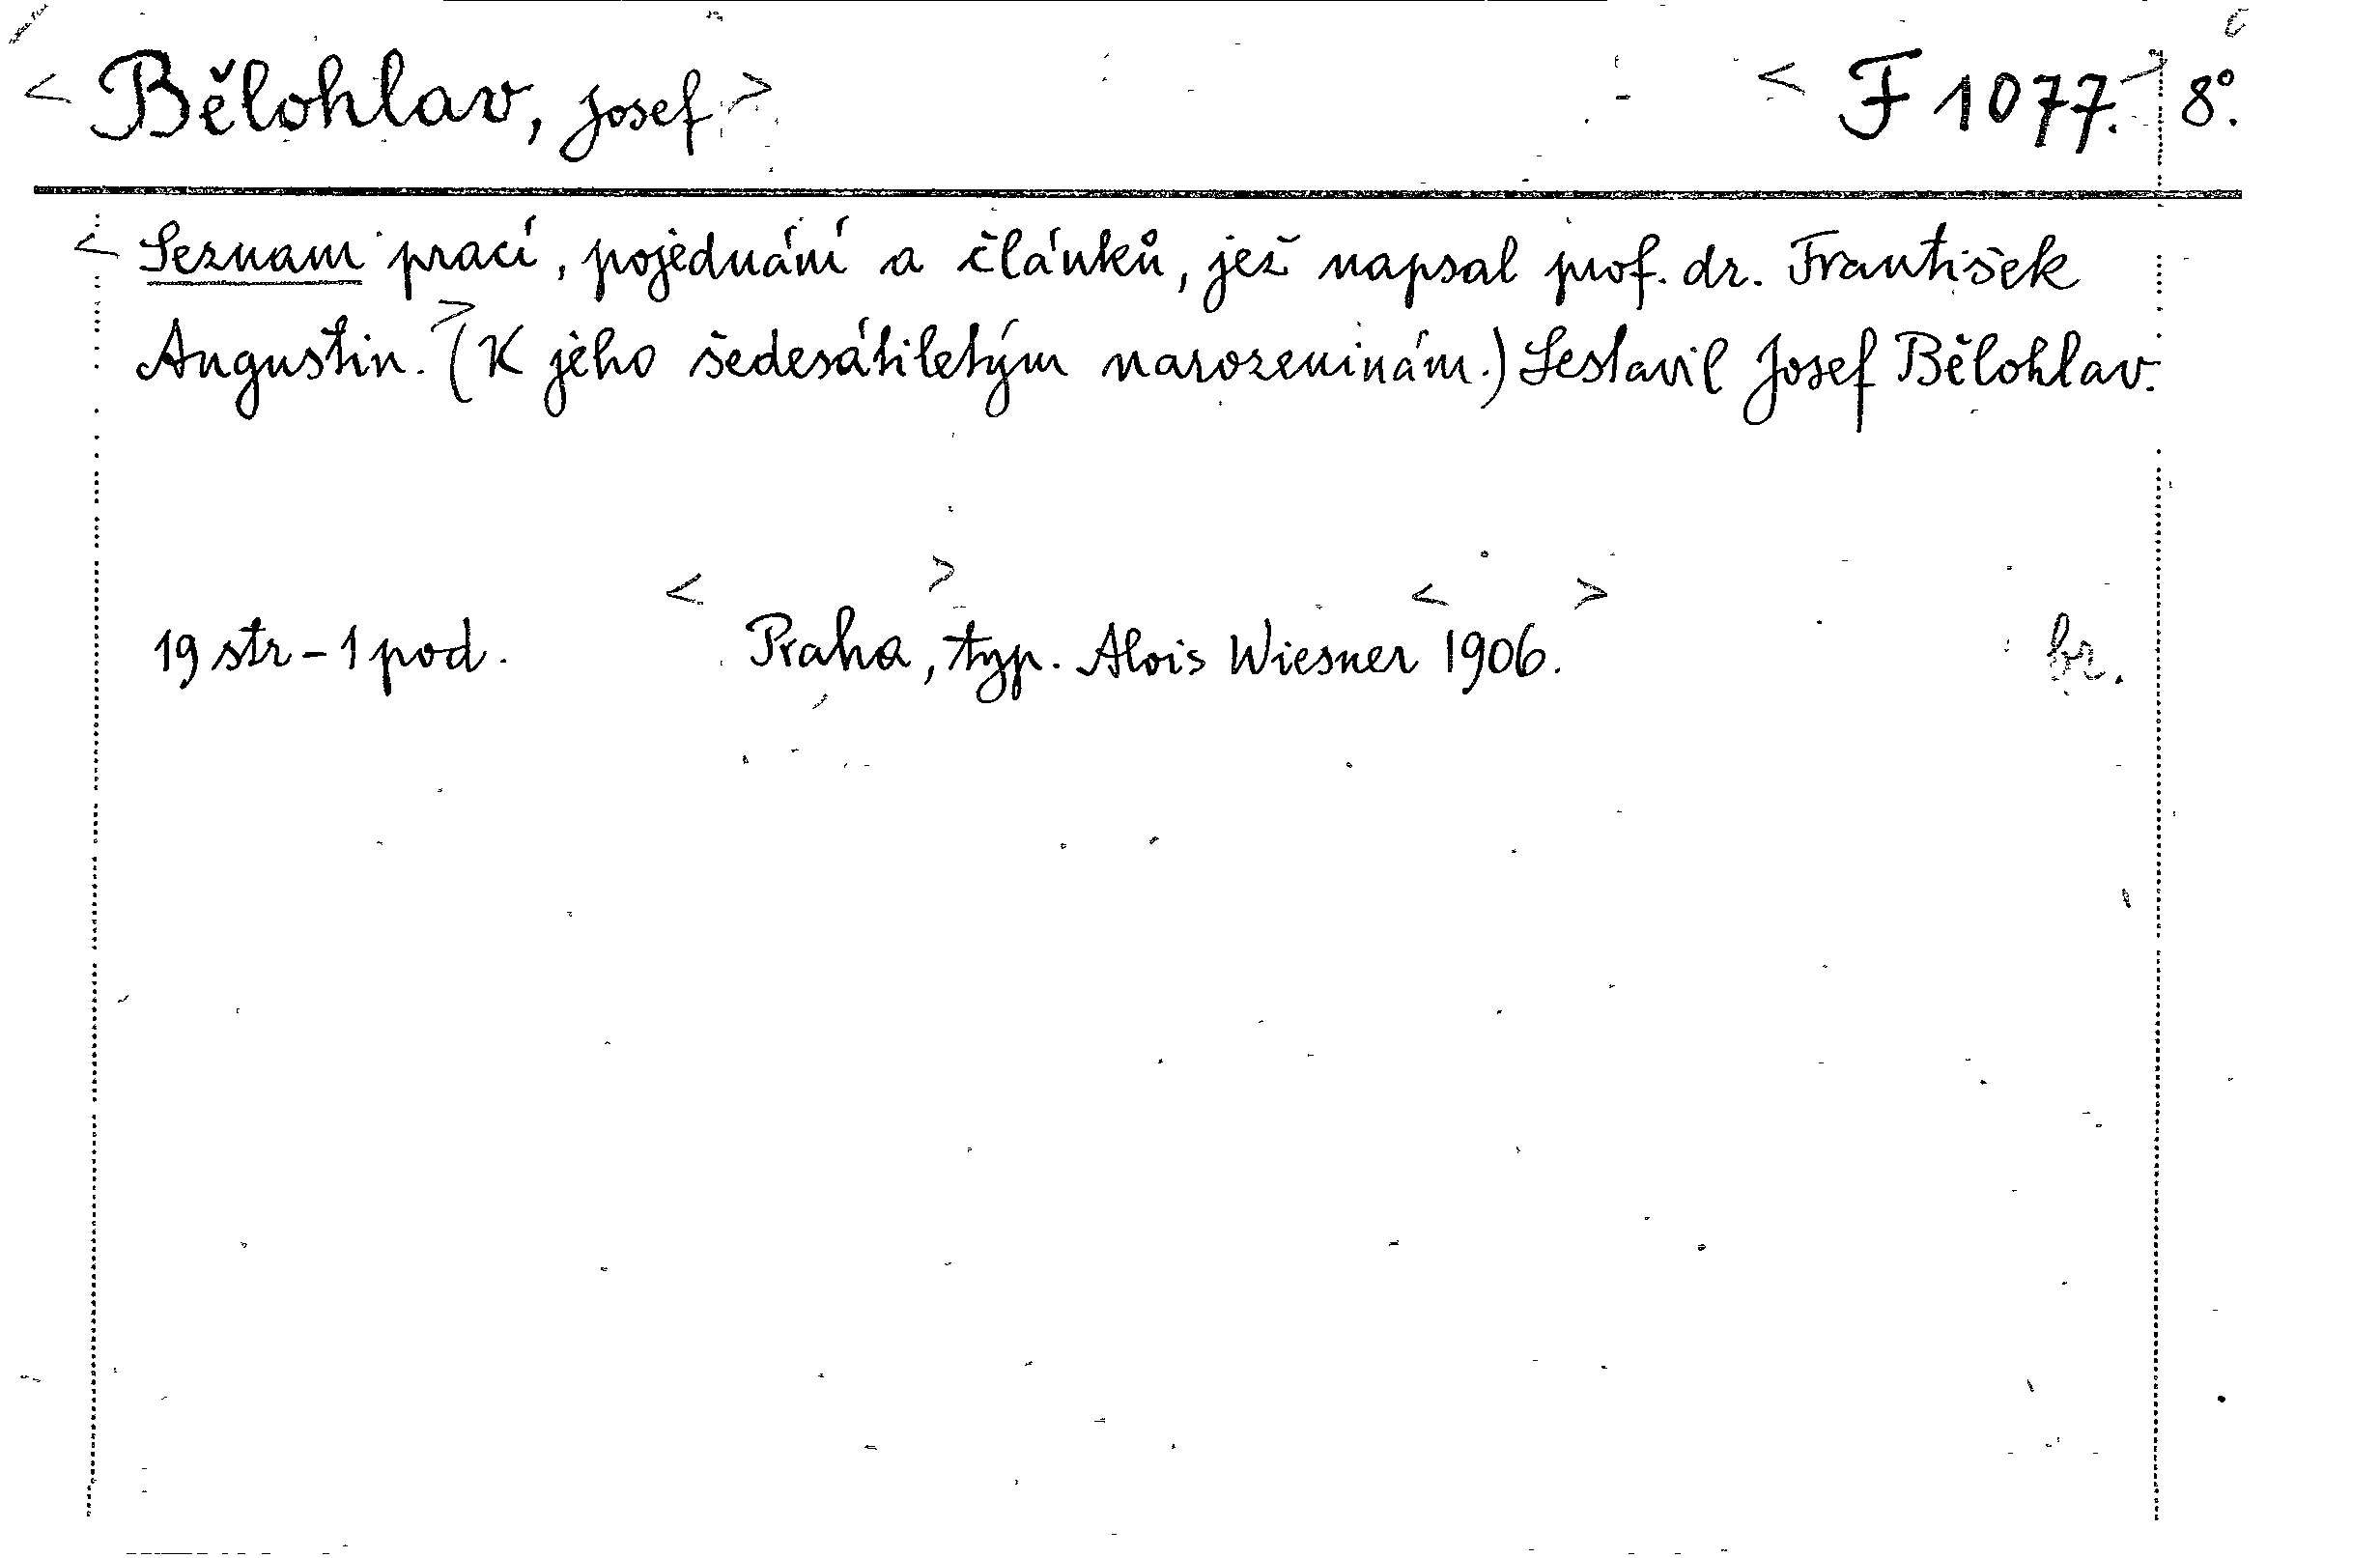 < Bělohlav, Josef > < F 1077. > 8°.
< Seznam prací, pojednání a článků, jež napsal prof. dr. František
Augustin. > (K jeho šedesátiletým narozeninám.) Sestavil Josef Bělohlav.
19 str – 1 pod. < Praha, > typ. Alois Wiesner < 1906. > br.